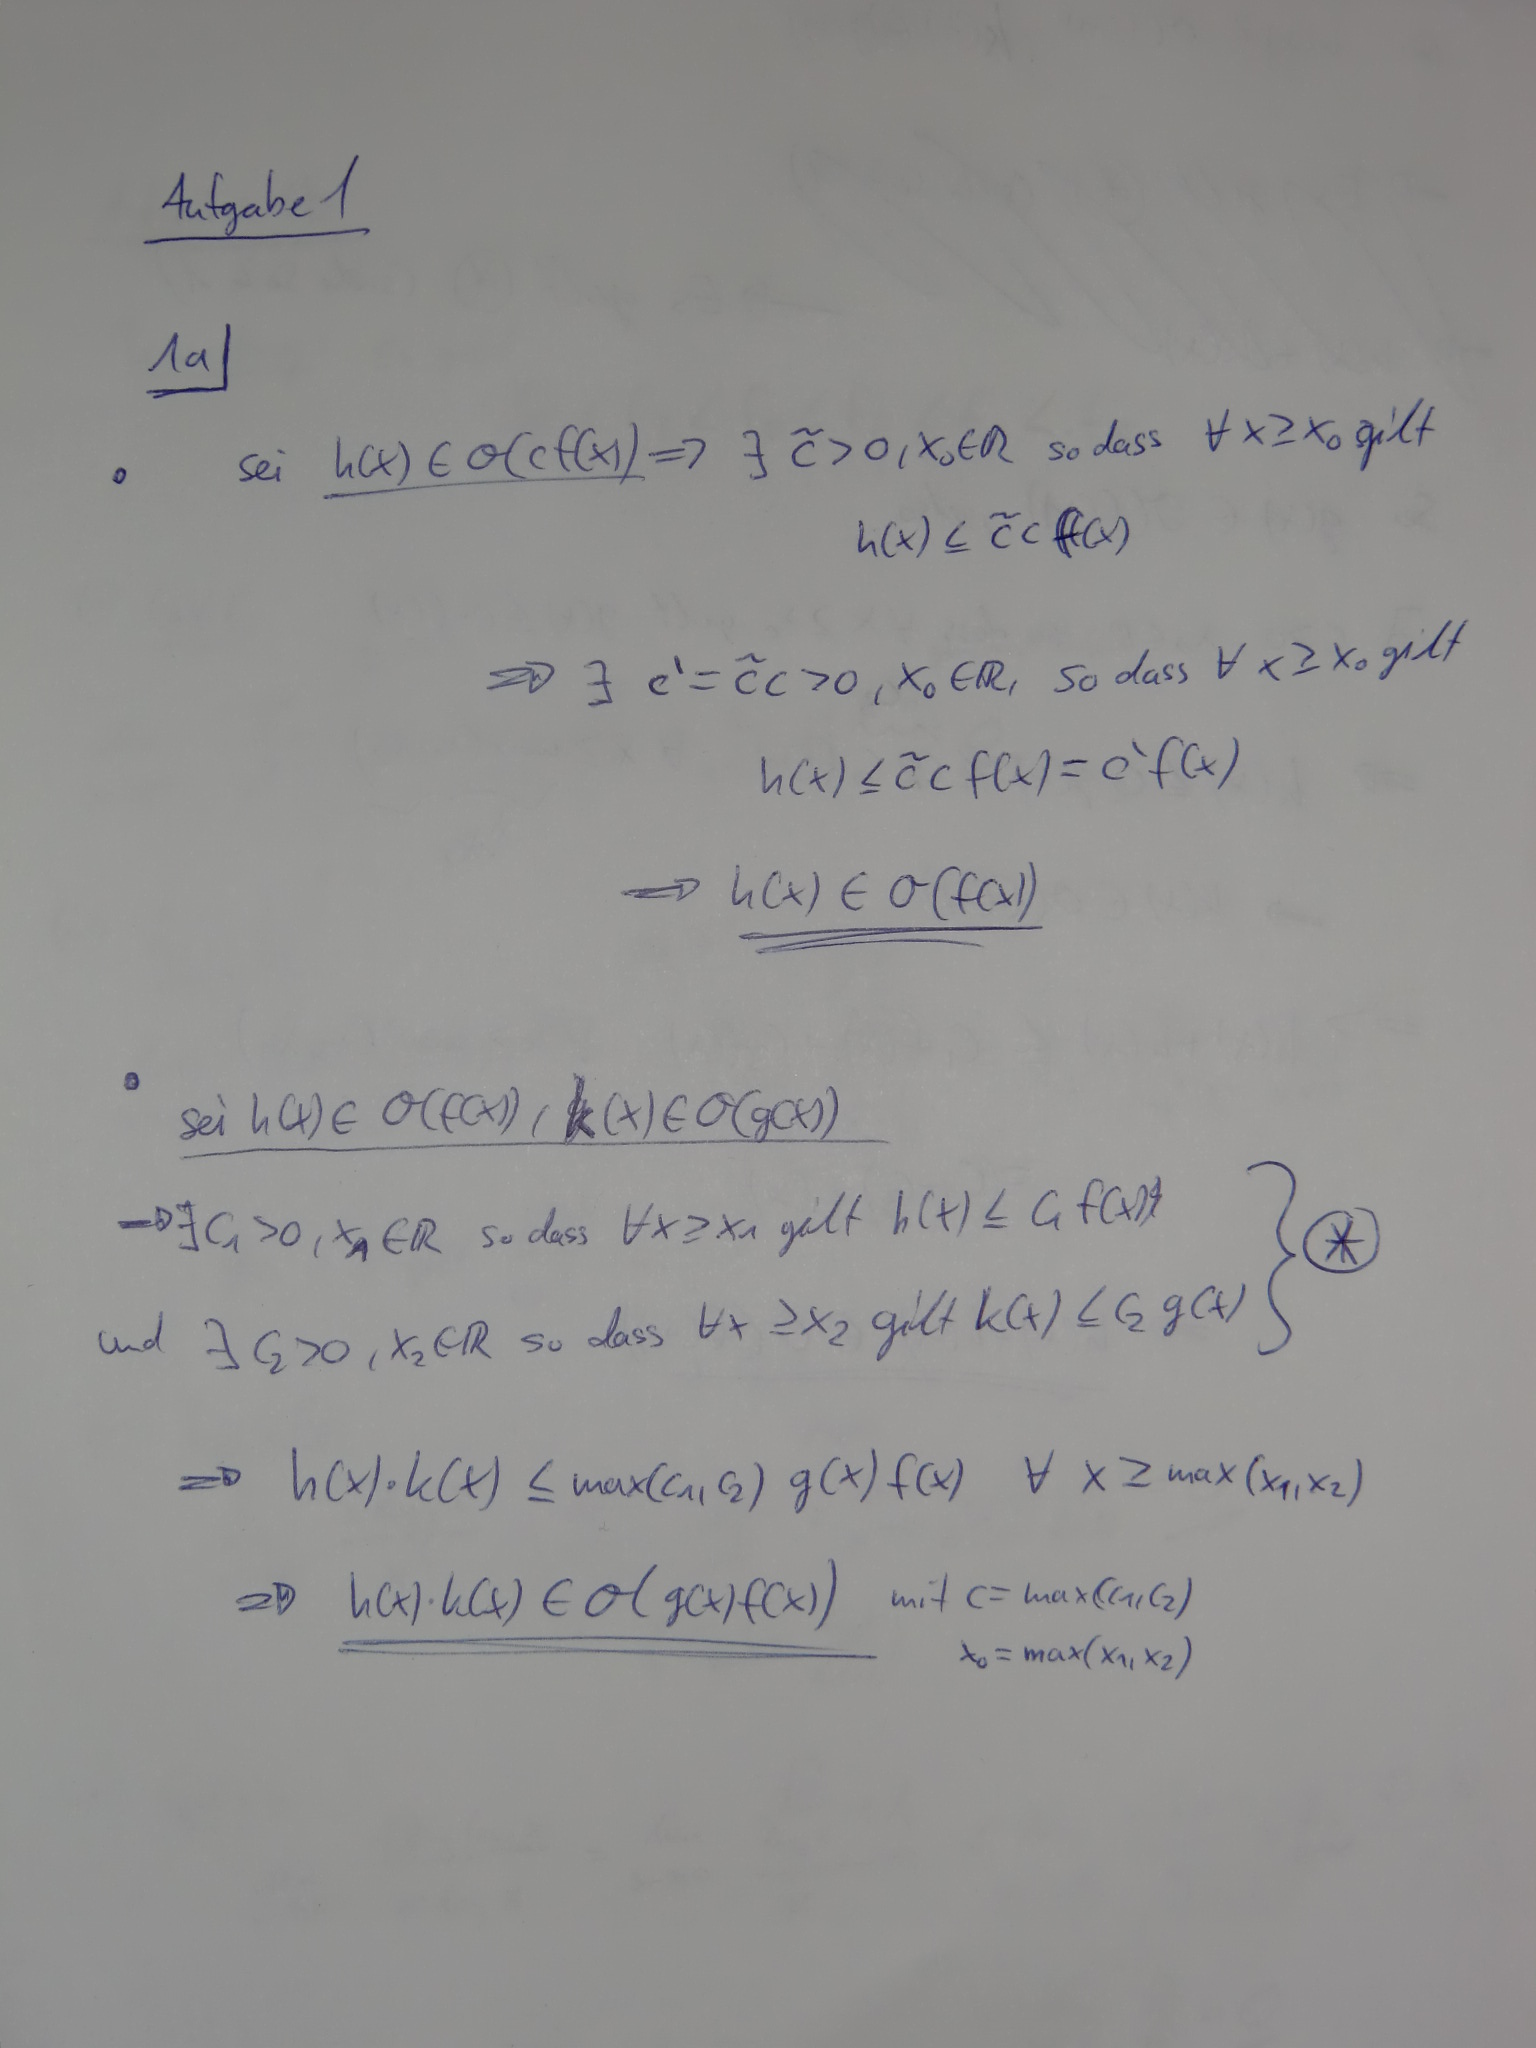 Aufgabe 1
1a
• sei h(x) ∈ O(c f(x)) ⇒ ∃ c̃ > 0, x₀ ∈ ℝ so dass ∀ x ≥ x₀ gilt
h(x) ≤ c̃ c f(x)
⇒ ∃ c' = c̃ c > 0, x₀ ∈ ℝ, so dass ∀ x ≥ x₀ gilt
h(x) ≤ c̃ c f(x) = c' f(x)
⇒ h(x) ∈ O(f(x))
• sei h(x) ∈ O(f(x)), k(x) ∈ O(g(x))
⇒ ∃ c₁ > 0, x₁ ∈ ℝ so dass ∀ x ≥ x₁ gilt h(x) ≤ c₁ f(x)
und ∃ c₂ > 0, x₂ ∈ ℝ so dass ∀ x ≥ x₂ gilt k(x) ≤ c₂ g(x) } ⊛
⇒ h(x)·k(x) ≤ max(c₁, c₂) g(x) f(x) ∀ x ≥ max(x₁, x₂)
⇒ h(x)·k(x) ∈ O(g(x) f(x)) mit c = max(c₁, c₂)
x₀ = max(x₁, x₂)